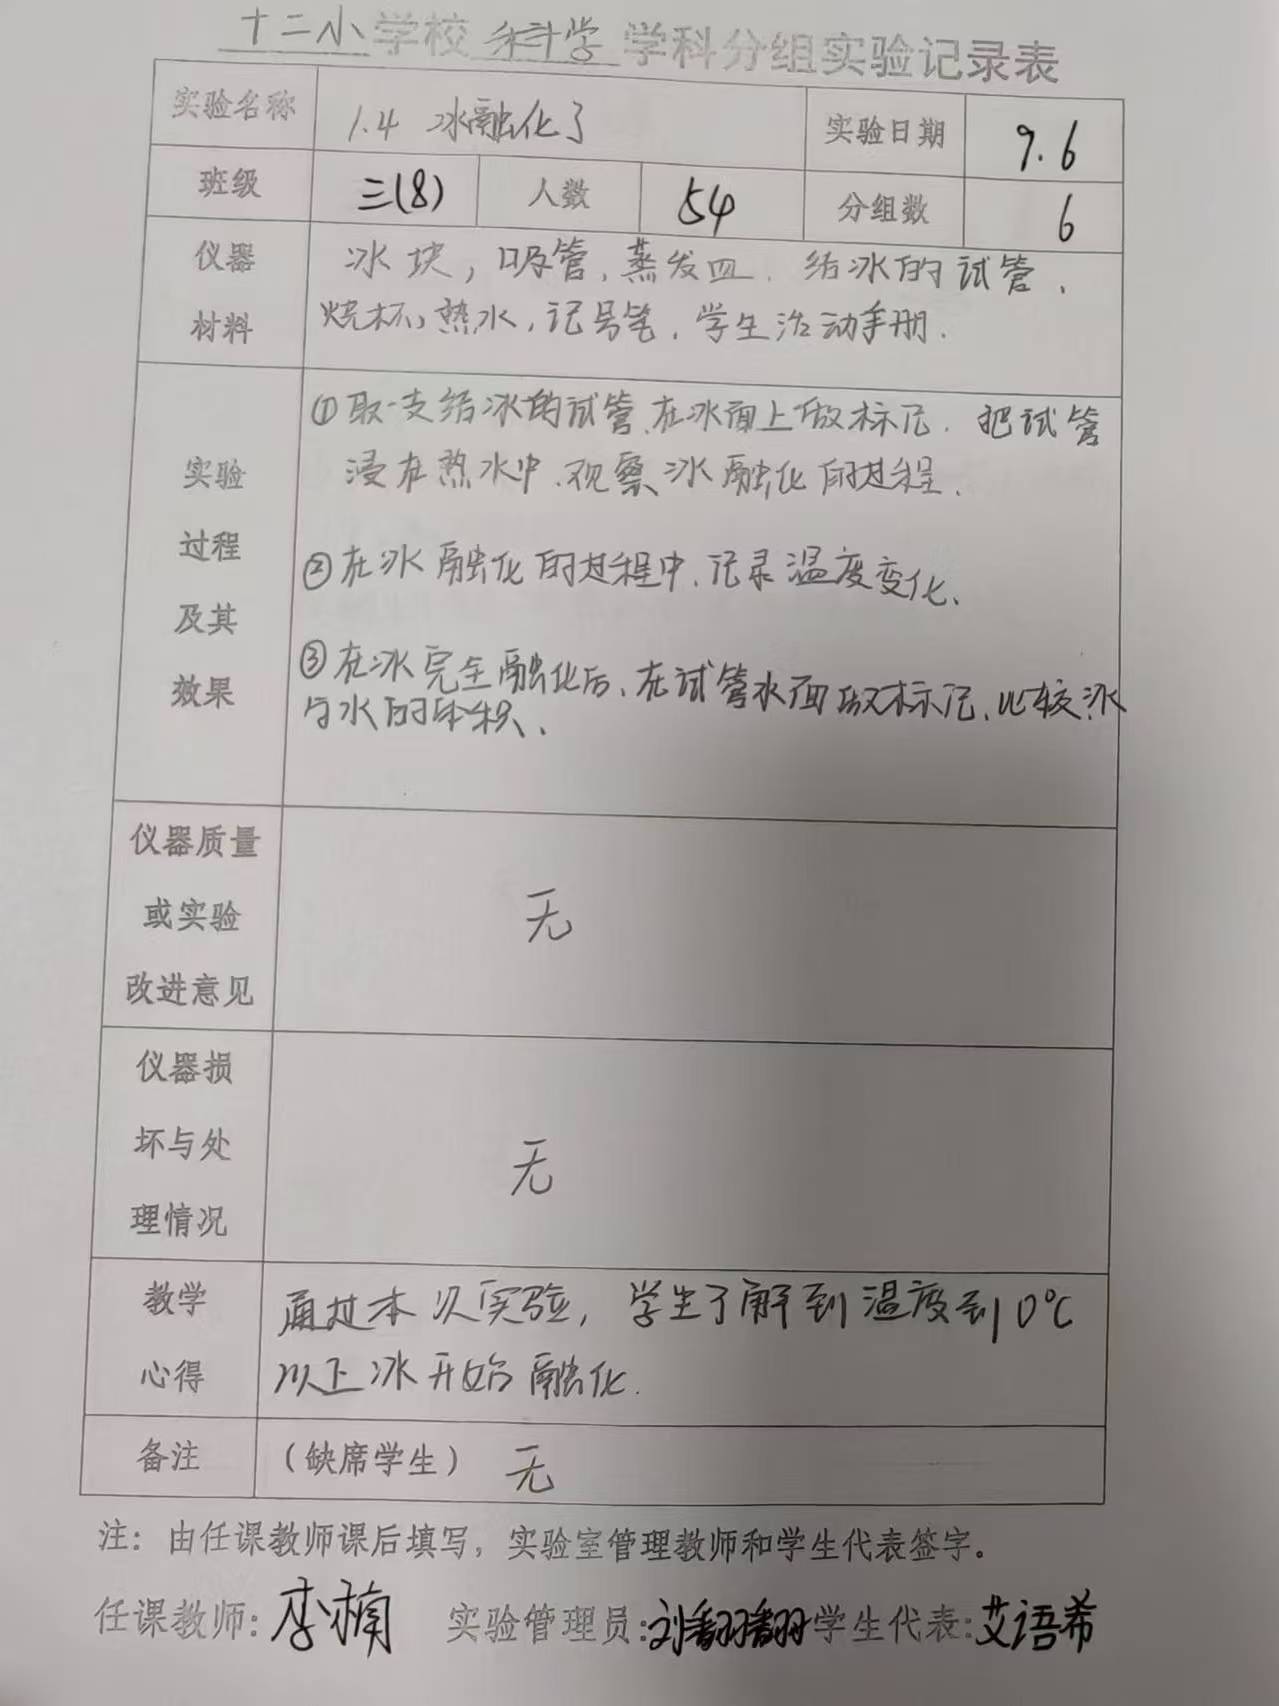 十二小学校 科学 学科分组实验记录表
实验名称 1.4 冰融化了 实验日期 9.6
班级 三(8) 人数 54 分组数 6
仪器 冰块，吸管，蒸发皿．结冰的试管、
材料 烧杯，热水，记号笔，学生活动手册．
①取一支结冰的试管、在冰面上做标记．把试管
浸在热水中、观察冰融化的过程、
实验
过程
及其
效果
②在冰融化的过程中、记录温度变化、
③在冰完全融化后、在试管水面做标记、比较冰
与水的体积、
仪器质量
或实验
改进意见
无
仪器损
坏与处
理情况
无
教学 通过本次实验，学生了解到温度到0℃
心得 以上冰开始融化．
备注 （缺席学生） 无
注：由任课教师课后填写，实验室管理教师和学生代表签字。
任课教师：李楠 实验管理员：刘翻翻 学生代表：艾语希